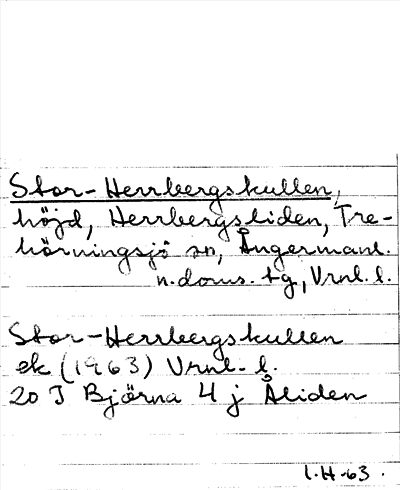 Stor-Herrbergskullen,
höjd, Herrbergsliden, Tre-
hörningsjö sn, Ångermanl.
n. doms. tg, Vrnl. l.
Stor-Herrbergskullen
ek (1963) Vrnl. l.
20 J Björna 4 j Åliden
I.H-63.